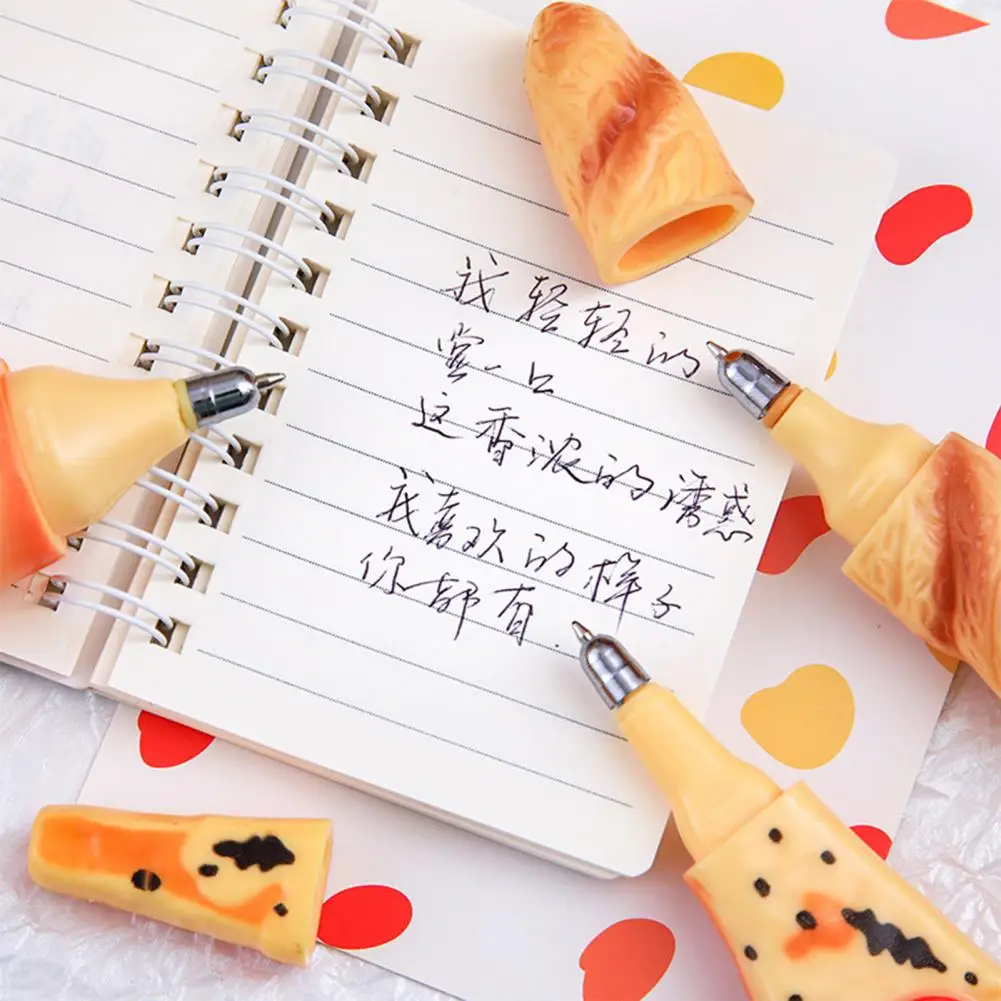 我轻轻的
尝一口
这香浓的诱惑
我喜欢的样子
你都有.